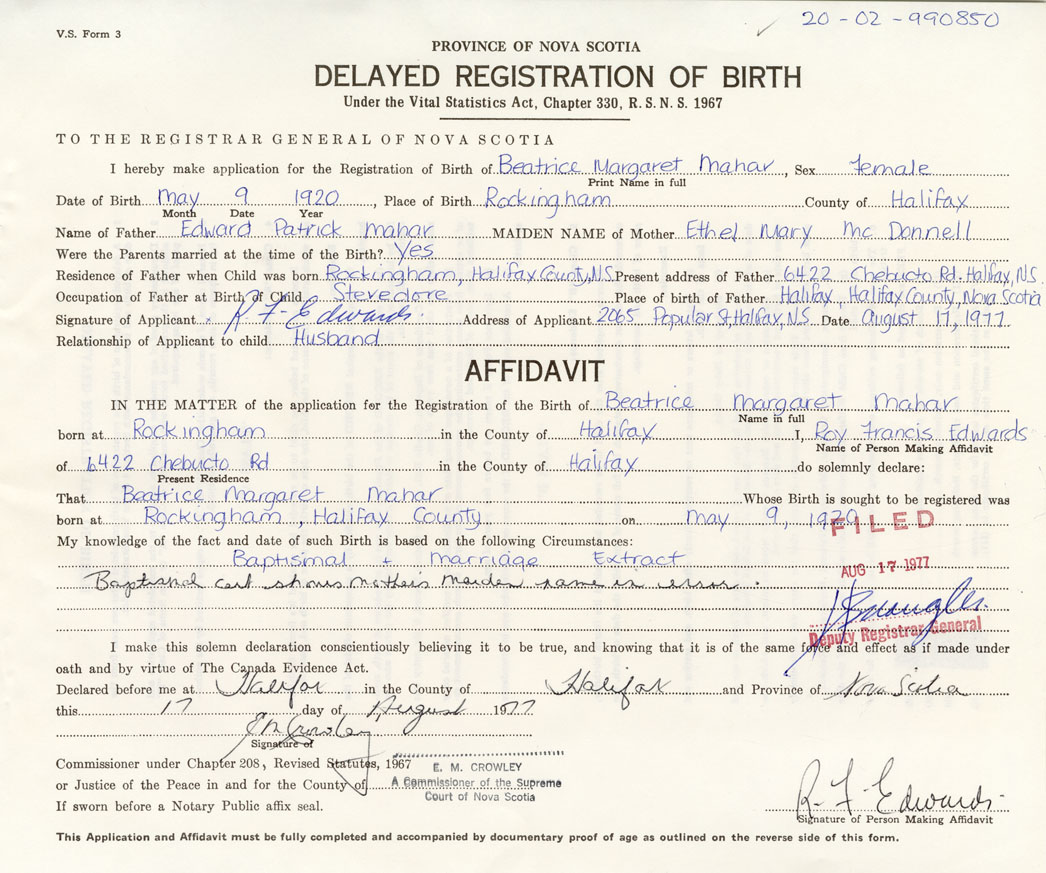 20-02-990850
V.S. Form 3
PROVINCE OF NOVA SCOTIA
DELAYED REGISTRATION OF BIRTH
Under the Vital Statistics Act, Chapter 330, R. S. N. S. 1967
TO THE REGISTRAR GENERAL OF NOVA SCOTIA
I hereby make application for the Registration of Birth of Beatrice Margaret Mahar, Sex Female
Print Name in full
Date of Birth May 9 1920, Place of Birth Rockingham County of Halifax
Month Date Year
Name of Father Edward Patrick Mahar MAIDEN NAME of Mother Ethel Mary Mc Donnell
Were the Parents married at the time of the Birth? Yes
Residence of Father when Child was born Rockingham, Halifax County, N.S. Present address of Father 6422 Chebucto Rd. Halifax, N.S.
Occupation of Father at Birth of Child Stevedore Place of birth of Father Halifax, Halifax County, Nova Scotia
Signature of Applicant x R F Edwards. Address of Applicant 2065 Popular St, Halifax, N.S Date August 17, 1977
Relationship of Applicant to child Husband
AFFIDAVIT
IN THE MATTER of the application for the Registration of the Birth of Beatrice Margaret Mahar
Name in full
born at Rockingham in the County of Halifax I, Roy Francis Edwards
Name of Person Making Affidavit
of 6422 Chebucto Rd in the County of Halifax do solemnly declare:
Present Residence
That Beatrice Margaret Mahar Whose Birth is sought to be registered was
born at Rockingham, Halifax County on May 9, 1920
FILED
My knowledge of the fact and date of such Birth is based on the following Circumstances:
Baptisimal + Marriage Extract
AUG 17 1977
Baptismal cert shows mother's maiden name in error.
Deputy Registrar General
I make this solemn declaration conscientiously believing it to be true, and knowing that it is of the same force and effect as if made under
oath and by virtue of The Canada Evidence Act.
Declared before me at Halifax in the County of Halifax and Province of Nova Scotia
this 17 day of August 1977
EM Crowley
Signature of
Commissioner under Chapter 208, Revised Statutes, 1967
E. M. CROWLEY
or Justice of the Peace in and for the County of
A Commissioner of the Supreme
Court of Nova Scotia
If sworn before a Notary Public affix seal.
R. F Edwards.
Signature of Person Making Affidavit
This Application and Affidavit must be fully completed and accompanied by documentary proof of age as outlined on the reverse side of this form.